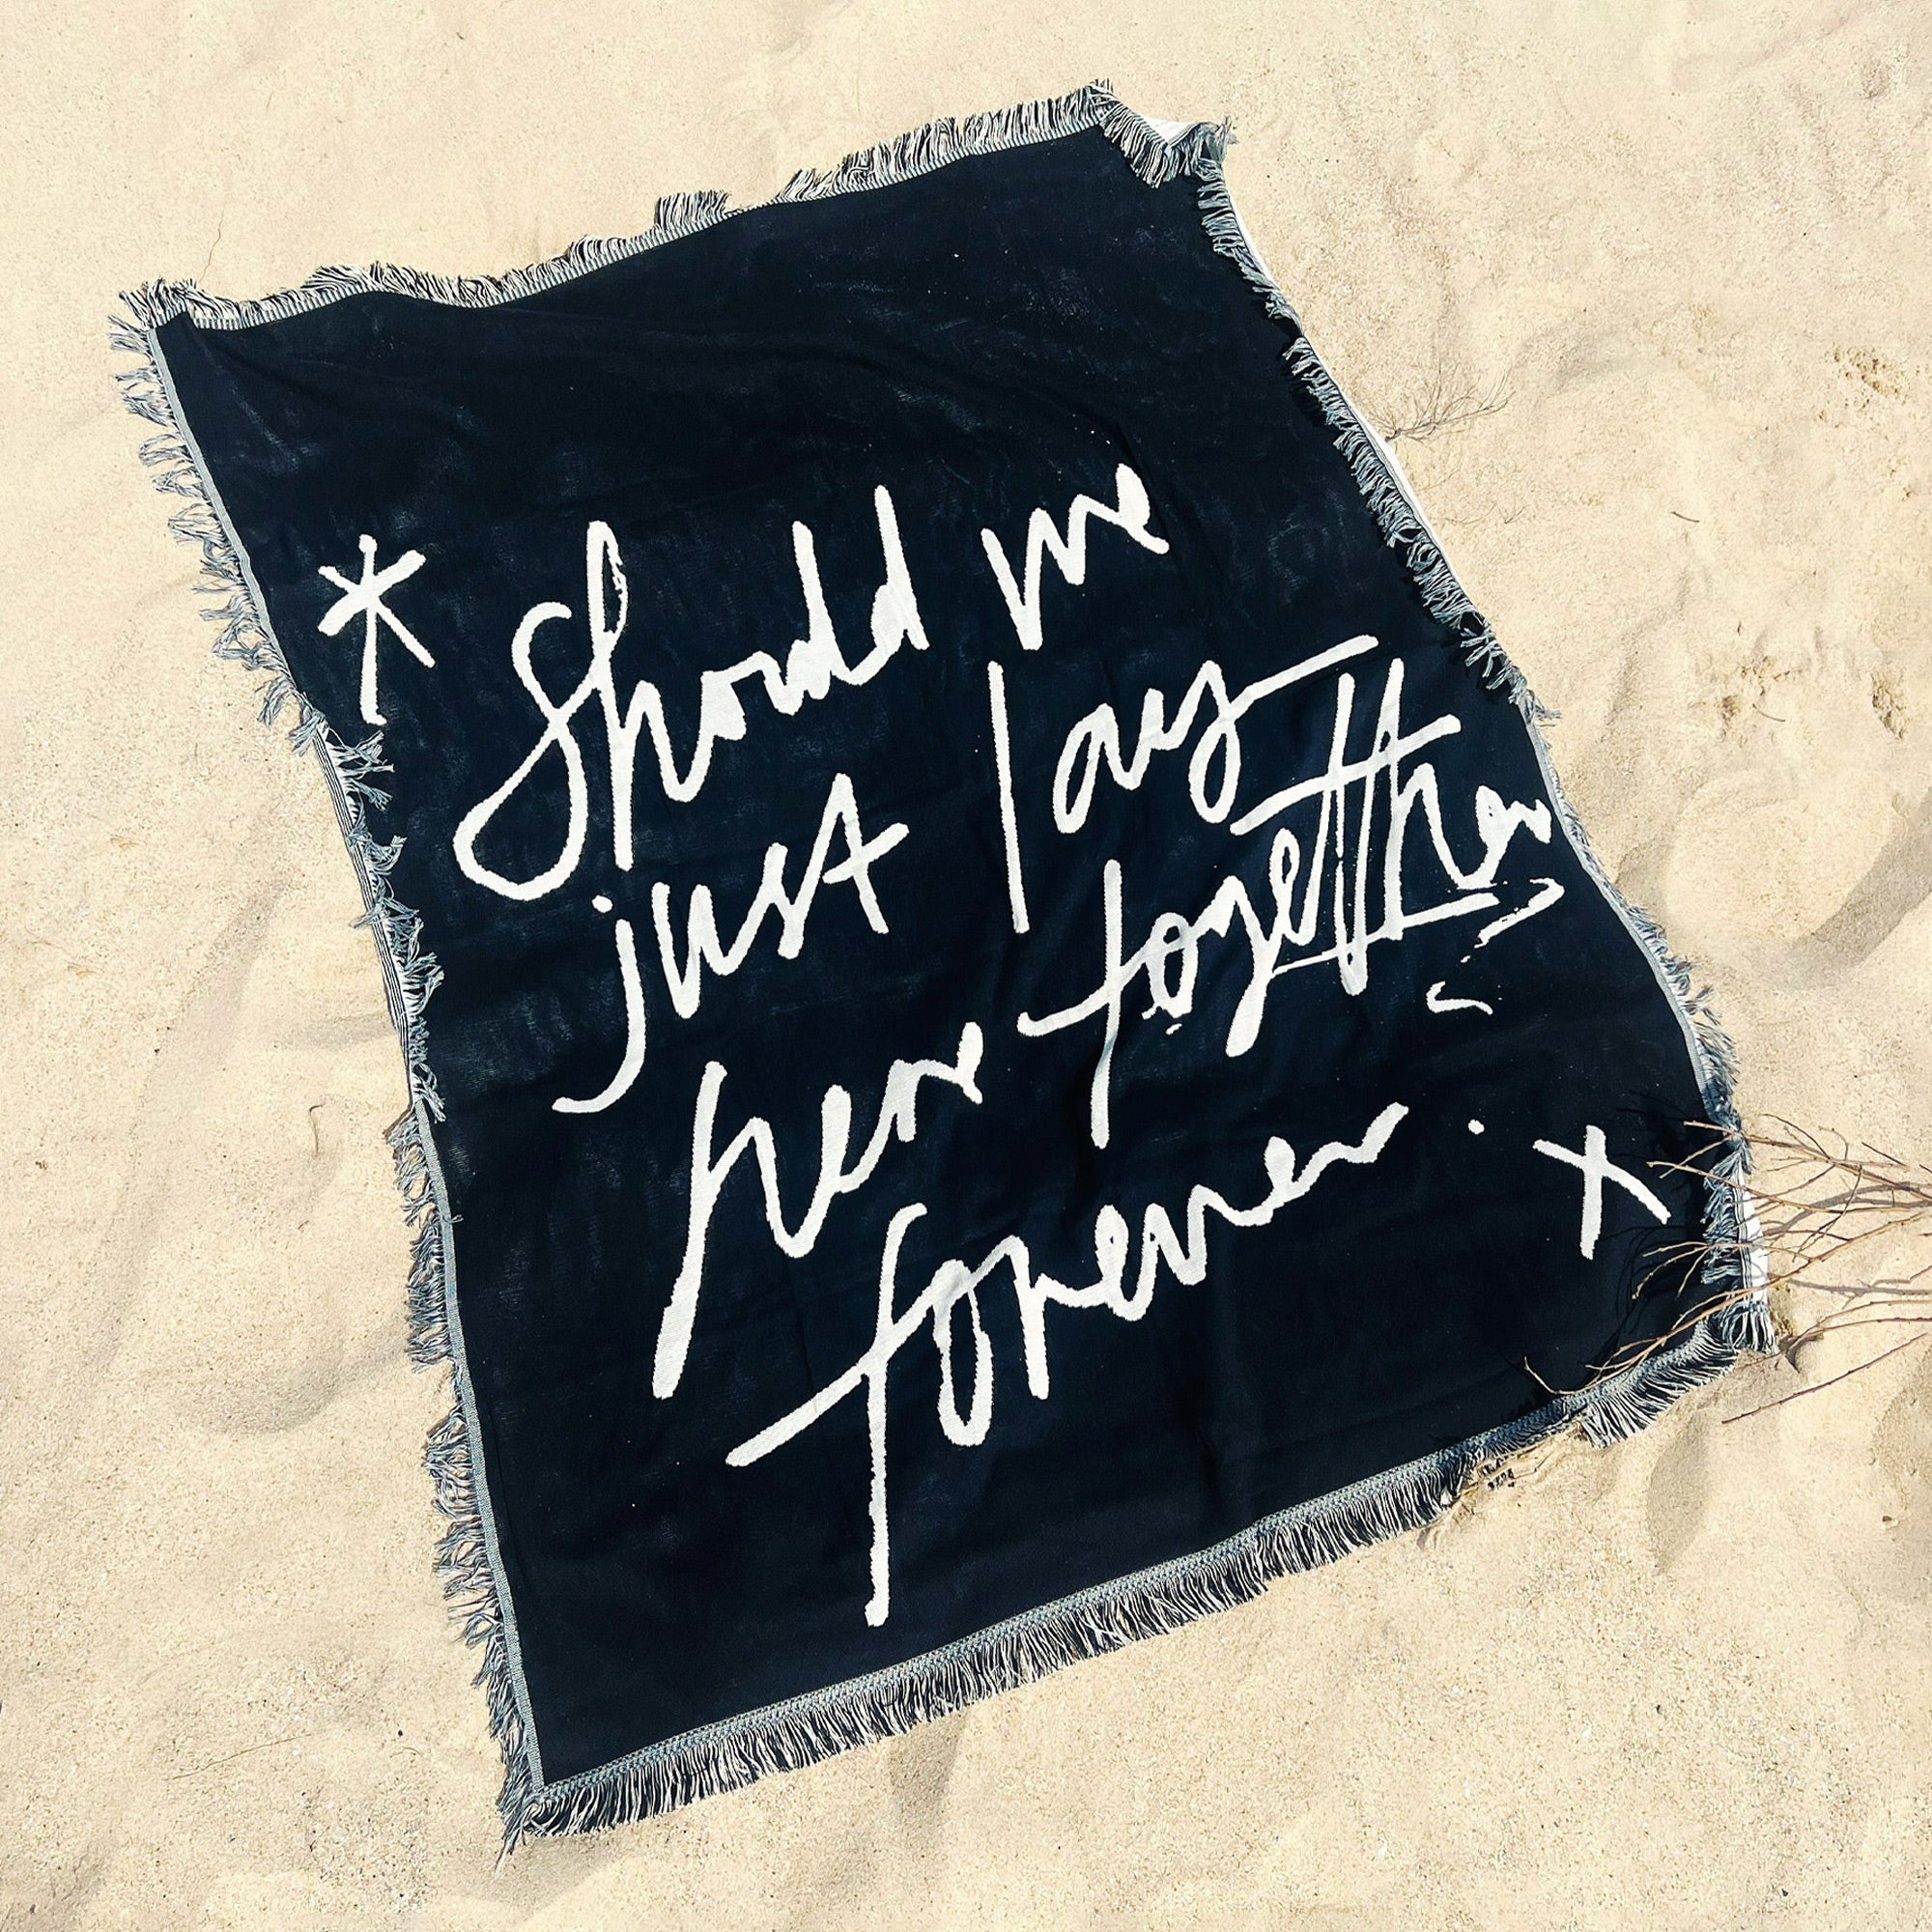 * Should we
just lay
here together
forever. x